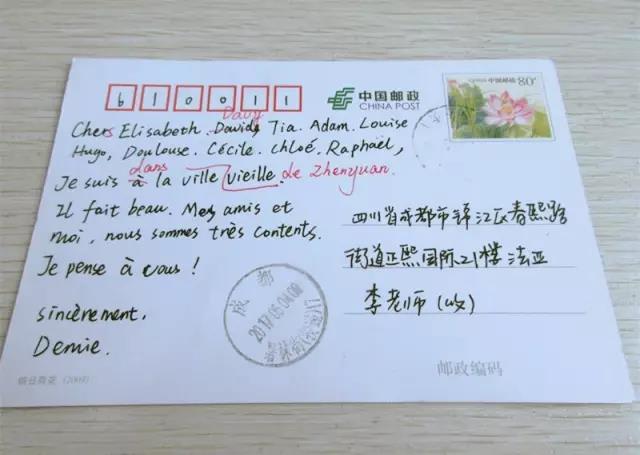 610011
中国邮政
CHINA POST
中国邮政 80分
Davy
Chers Elisabeth. Davids Tia. Adam. Louise
Hugo, Doulouse. Cécile. Chloé. Raphaël,
dans
Je suis à la ville vieille de Zhenyuan.
Il fait beau. Mes amis et
moi, nous sommes très contents.
Je pense à vous !
sincèrement,
Demie.
四川省成都市锦江区春熙路
街道正熙国际21楼 法亚
李老师(收)
成都
2017.05.04.09
邮政编码